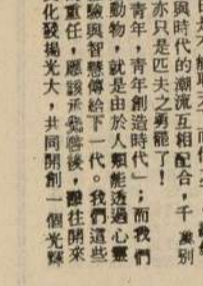 與時代的潮流互相配合，千萬別
亦只是匹夫之勇罷了！
青年，青年創造時代」；而我們
動物，就是由於人類能透過心靈
驗與智慧傳給下一代。我們這些
重任，應該承先啓後，繼往開來
化發揚光大，共同開創一個光輝